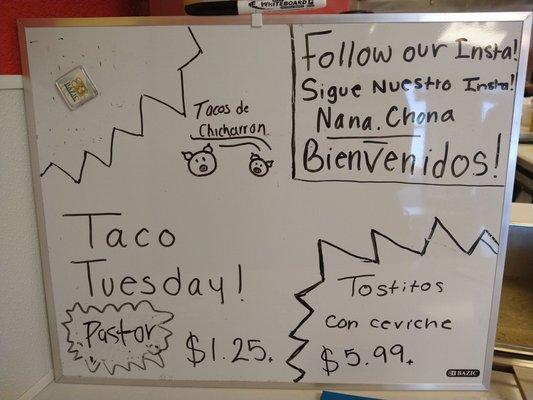 WHITEBOARD
Follow our Insta!
Sigue Nuestro Insta!
Nana.Chona
Bienvenidos!
Tacos de
Chicharron
Taco
Tuesday!
Pastor
$1.25.
Tostitos
con ceviche
$5.99.
BAZIC